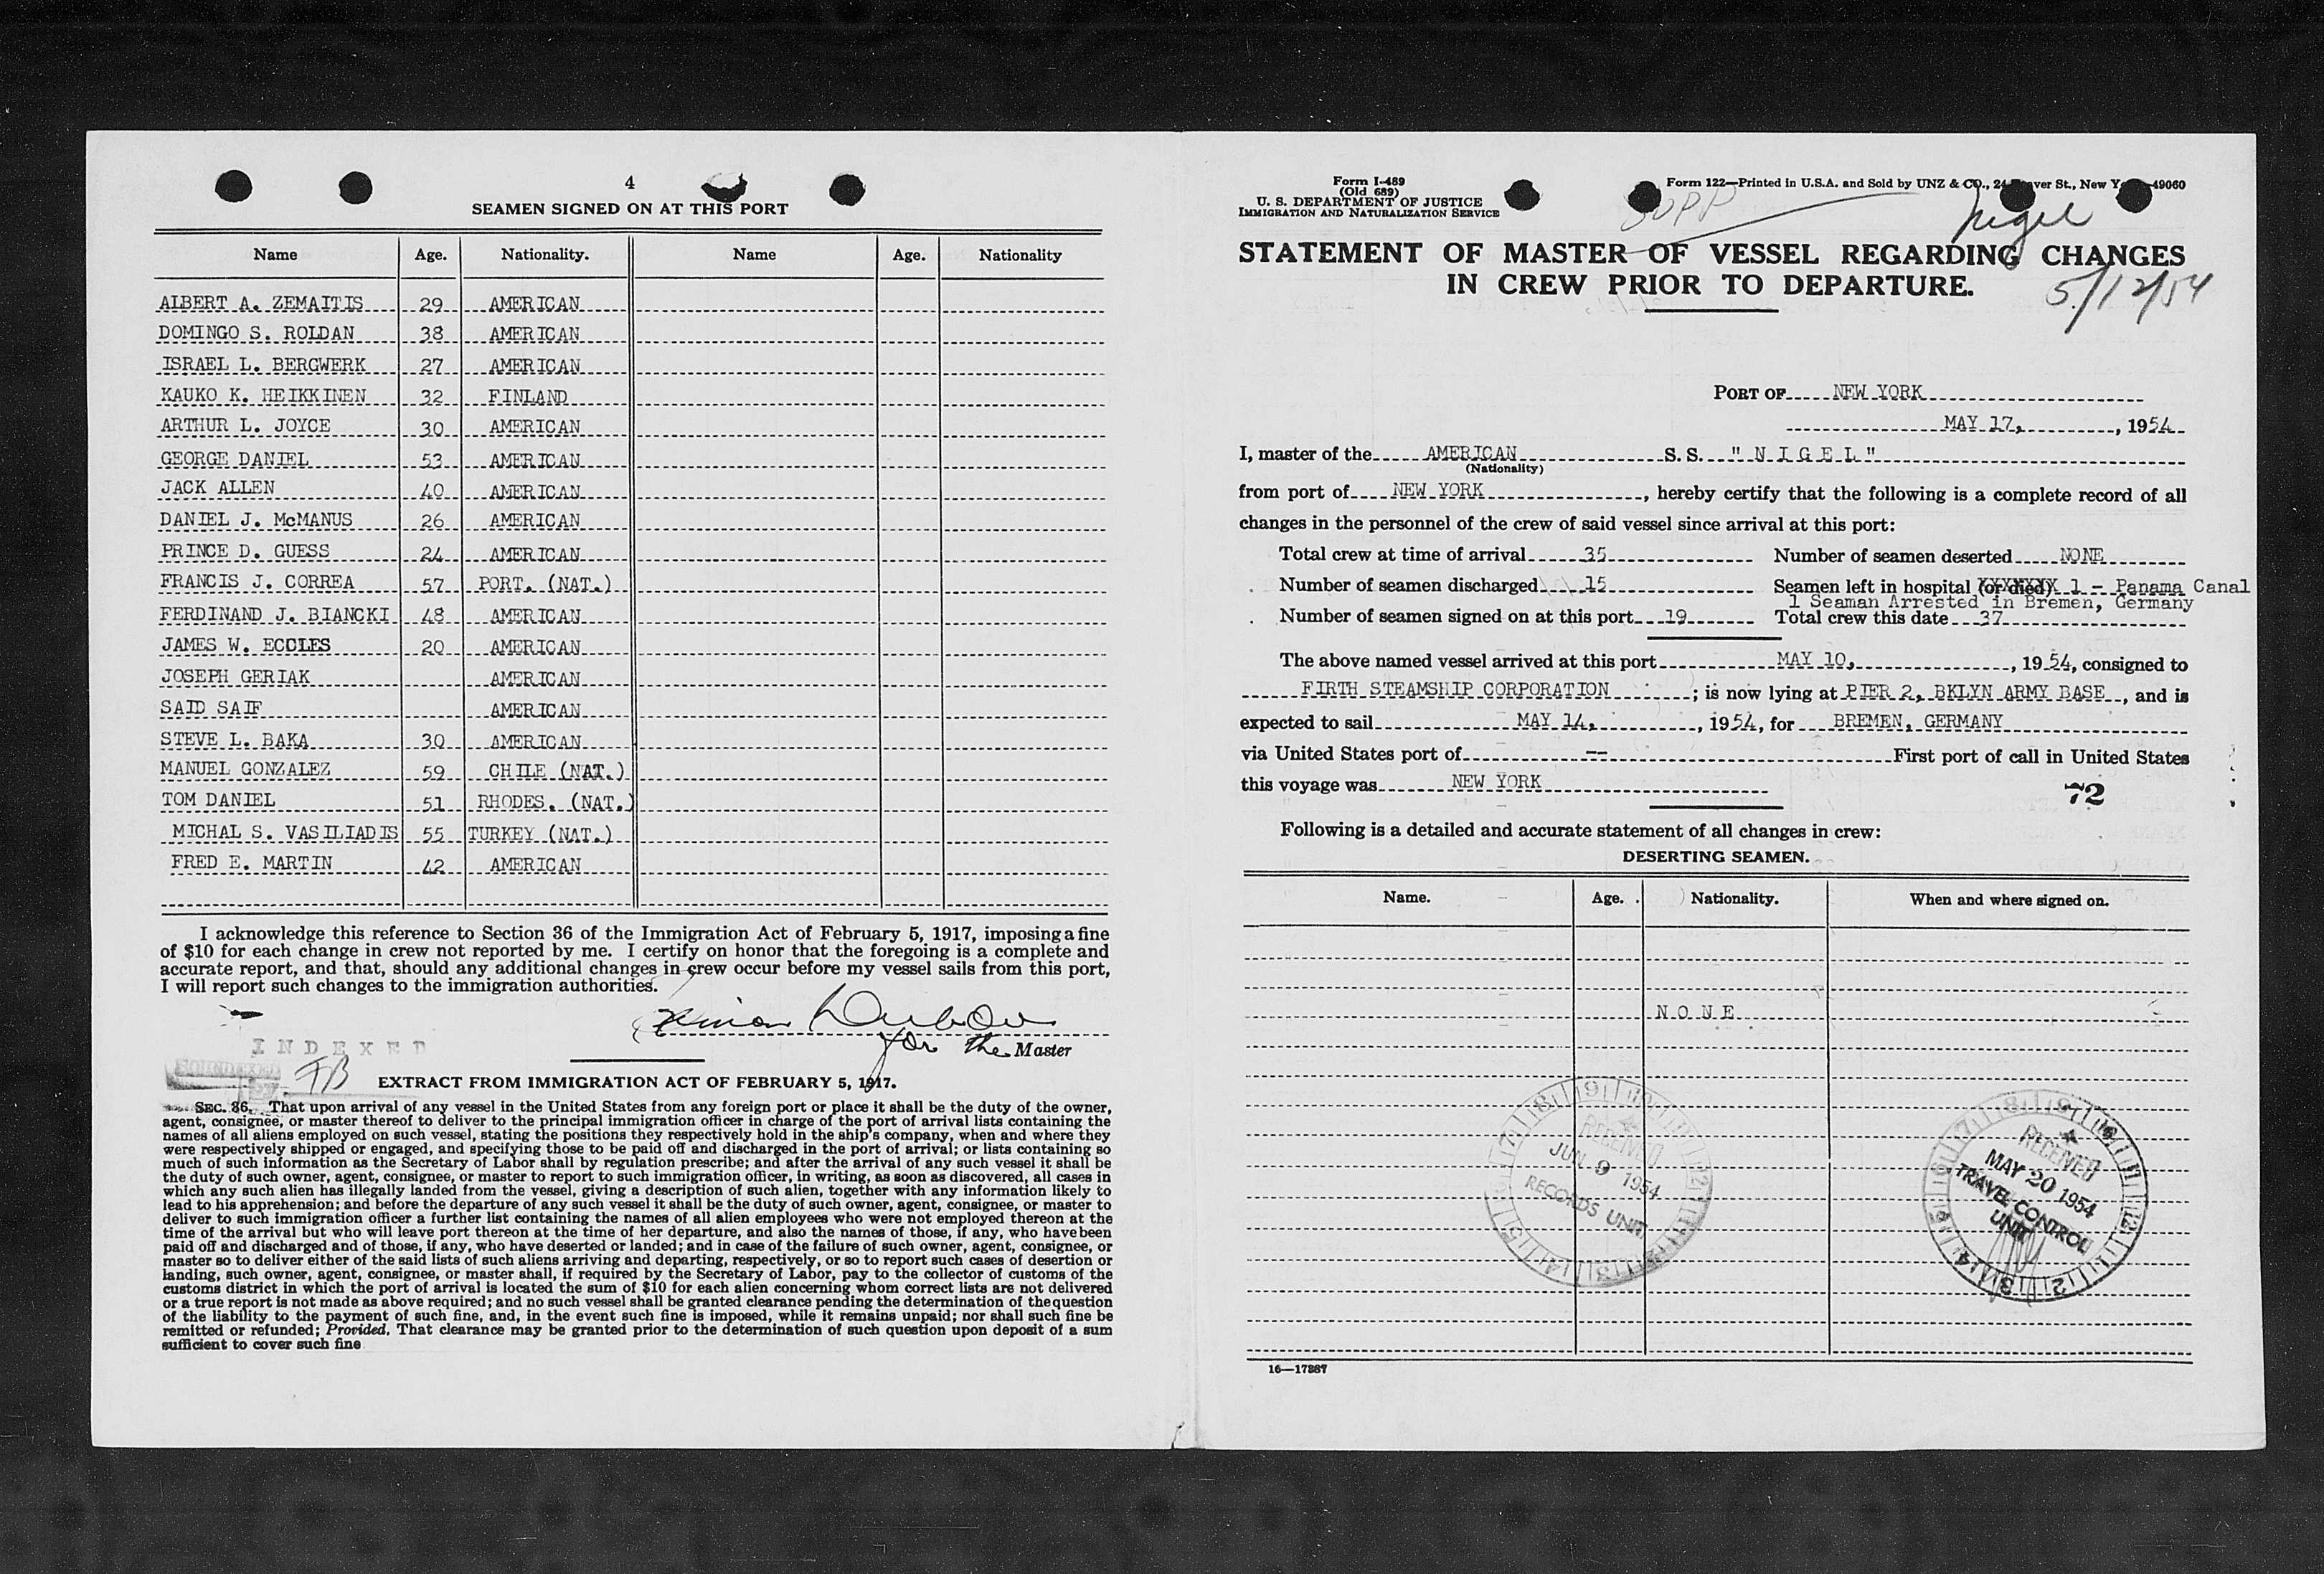 4
SEAMEN SIGNED ON AT THIS PORT
Name Age. Nationality. Name Age. Nationality
ALBERT A. ZEMAITIS 29 AMERICAN
DOMINGO S. ROLDAN 38 AMERICAN
ISRAEL L. BERGWERK 27 AMERICAN
KAUKO K. HEIKKINEN 32 FINLAND
ARTHUR L. JOYCE 30 AMERICAN
GEORGE DANIEL 53 AMERICAN
JACK ALLEN 40 AMERICAN
DANIEL J. McMANUS 26 AMERICAN
PRINCE D. GUESS 24 AMERICAN
FRANCIS J. CORREA 57 PORT. (NAT.)
FERDINAND J. BIANCKI 48 AMERICAN
JAMES W. ECCLES 20 AMERICAN
JOSEPH GERIAK AMERICAN
SAID SAIF AMERICAN
STEVE L. BAKA 30 AMERICAN
MANUEL GONZALEZ 59 CHILE (NAT.)
TOM DANIEL 51 RHODES. (NAT.)
MICHAL S. VASILIADIS 55 TURKEY (NAT.)
FRED E. MARTIN 42 AMERICAN
I acknowledge this reference to Section 36 of the Immigration Act of February 5, 1917, imposing a fine
of $10 for each change in crew not reported by me. I certify on honor that the foregoing is a complete and
accurate report, and that, should any additional changes in crew occur before my vessel sails from this port,
I will report such changes to the immigration authorities.
for the Master
INDEXED
FB
EXTRACT FROM IMMIGRATION ACT OF FEBRUARY 5, 1917.
SEC. 36. That upon arrival of any vessel in the United States from any foreign port or place it shall be the duty of the owner,
agent, consignee, or master thereof to deliver to the principal immigration officer in charge of the port of arrival lists containing the
names of all aliens employed on such vessel, stating the positions they respectively hold in the ship's company, when and where they
were respectively shipped or engaged, and specifying those to be paid off and discharged in the port of arrival; or lists containing so
much of such information as the Secretary of Labor shall by regulation prescribe; and after the arrival of any such vessel it shall be
the duty of such owner, agent, consignee, or master to report to such immigration officer, in writing, as soon as discovered, all cases in
which any such alien has illegally landed from the vessel, giving a description of such alien, together with any information likely to
lead to his apprehension; and before the departure of any such vessel it shall be the duty of such owner, agent, consignee, or master to
deliver to such immigration officer a further list containing the names of all alien employees who were not employed thereon at the
time of the arrival but who will leave port thereon at the time of her departure, and also the names of those, if any, who have been
paid off and discharged and of those, if any, who have deserted or landed; and in case of the failure of such owner, agent, consignee, or
master so to deliver either of the said lists of such aliens arriving and departing, respectively, or so to report such cases of desertion or
landing, such owner, agent, consignee, or master shall, if required by the Secretary of Labor, pay to the collector of customs of the
customs district in which the port of arrival is located the sum of $10 for each alien concerning whom correct lists are not delivered
or a true report is not made as above required; and no such vessel shall be granted clearance pending the determination of the question
of the liability to the payment of such fine, and, in the event such fine is imposed, while it remains unpaid; nor shall such fine be
remitted or refunded; Provided, That clearance may be granted prior to the determination of such question upon deposit of a sum
sufficient to cover such fine
Form I-489
(Old 689)
U. S. DEPARTMENT OF JUSTICE
IMMIGRATION AND NATURALIZATION SERVICE
Form 122—Printed in U.S.A. and Sold by UNZ & CO., 24 ver St., New Y 49060
SUPP
Nigel
STATEMENT OF MASTER OF VESSEL REGARDING CHANGES
IN CREW PRIOR TO DEPARTURE.
5/12/54
PORT OF NEW YORK
MAY 17, , 1954
I, master of the AMERICAN S. S. " N I G E L "
(Nationality)
from port of NEW YORK , hereby certify that the following is a complete record of all
changes in the personnel of the crew of said vessel since arrival at this port:
Total crew at time of arrival 35 Number of seamen deserted NONE
Number of seamen discharged 15 Seamen left in hospital (or died) 1 - Panama Canal
1 Seaman Arrested in Bremen, Germany
Number of seamen signed on at this port 19 Total crew this date 37
The above named vessel arrived at this port MAY 10, , 1954, consigned to
FIRTH STEAMSHIP CORPORATION ; is now lying at PIER 2, BKLYN ARMY BASE , and is
expected to sail MAY 14, , 1954, for BREMEN, GERMANY
via United States port of -- First port of call in United States
this voyage was NEW YORK
72
Following is a detailed and accurate statement of all changes in crew:
DESERTING SEAMEN.
Name. Age. Nationality. When and where signed on.
NONE
RECEIVED
JUN 9 1954
RECORDS UNIT
RECEIVED
MAY 20 1954
TRAVEL CONTROL
UNIT
16—17387